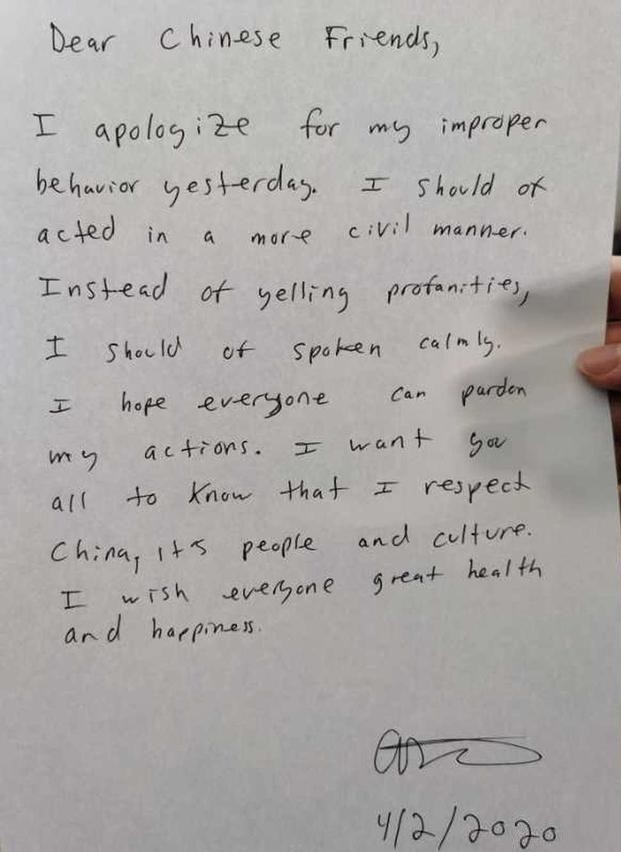 Dear Chinese Friends,
I apologize for my improper
behavior yesterday. I should of
acted in a more civil manner.
Instead of yelling profanities,
I should of spoken calmly.
I hope everyone can pardon
my actions. I want you
all to know that I respect
China, it's people and culture.
I wish everyone great health
and happiness.
4/2/2020